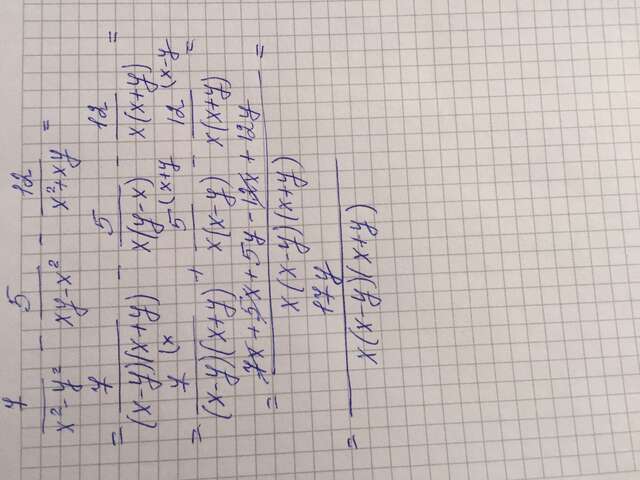 7/(x²-y²) - 5/(xy-x²) - 12/(x²+xy) =
= 7/((x-y)(x+y)) - 5/(x(y-x)) - 12/(x(x+y)) =
= 7 (x/((x-y)(x+y)) + 5 (x+y/(x(x-y)) - 12 (x-y/(x(x+y)) =
= (7x+5x+5y-12x+12y)/(x(x-y)(x+y)) =
= 17y/(x(x-y)(x+y))